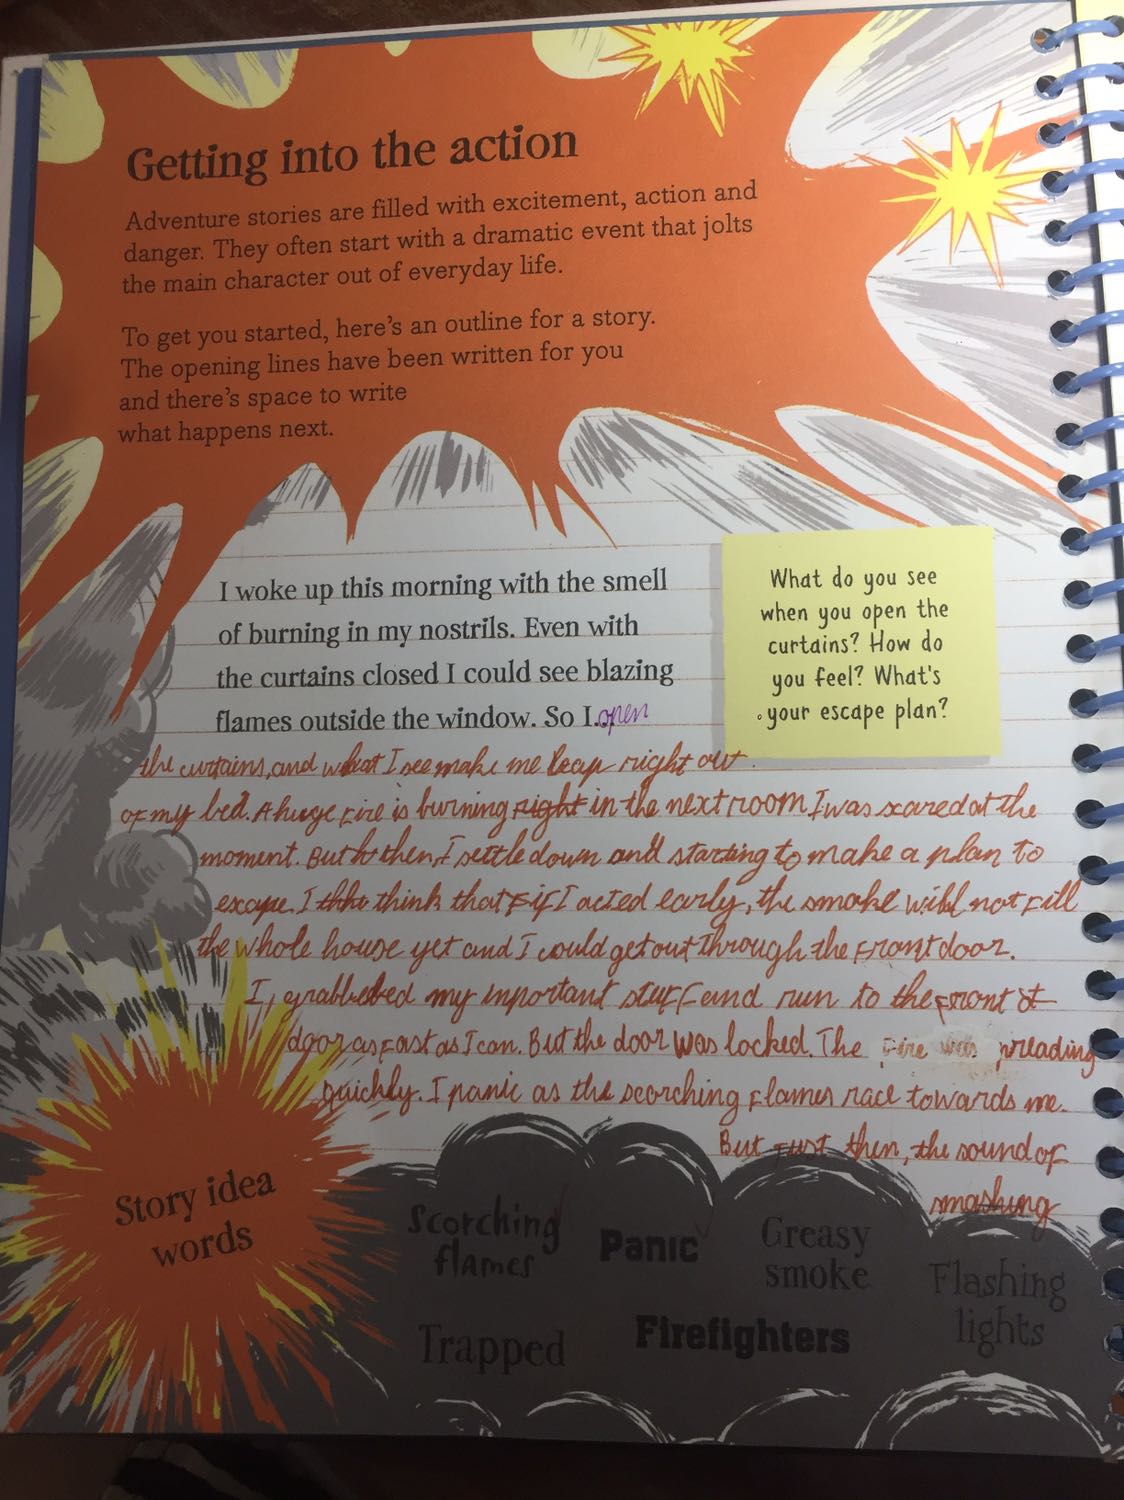 Getting into the action
Adventure stories are filled with excitement, action and
danger. They often start with a dramatic event that jolts
the main character out of everyday life.
To get you started, here's an outline for a story.
The opening lines have been written for you
and there's space to write
what happens next.
I woke up this morning with the smell
of burning in my nostrils. Even with
the curtains closed I could see blazing
flames outside the window. So I... open
What do you see
when you open the
curtains? How do
you feel? What's
your escape plan?
the curtains, and what I see make me leap right out
of my bed. A huge fire is burning right in the next room. I was scared at the
moment. But then, I settle down and starting to make a plan to
escape. I think that if I acted early, the smoke will not fill
the whole house yet and I could get out through the front door.
I grabbed my important stuff and run to the front
door as fast as I can. But the door was locked. The fire was preading
quickly. I panic as the scorching flames race towards me.
But just then, the sound of
smashing
Story idea
words
Scorching
flames
Panic
Greasy
smoke
Flashing
lights
Trapped
Firefighters